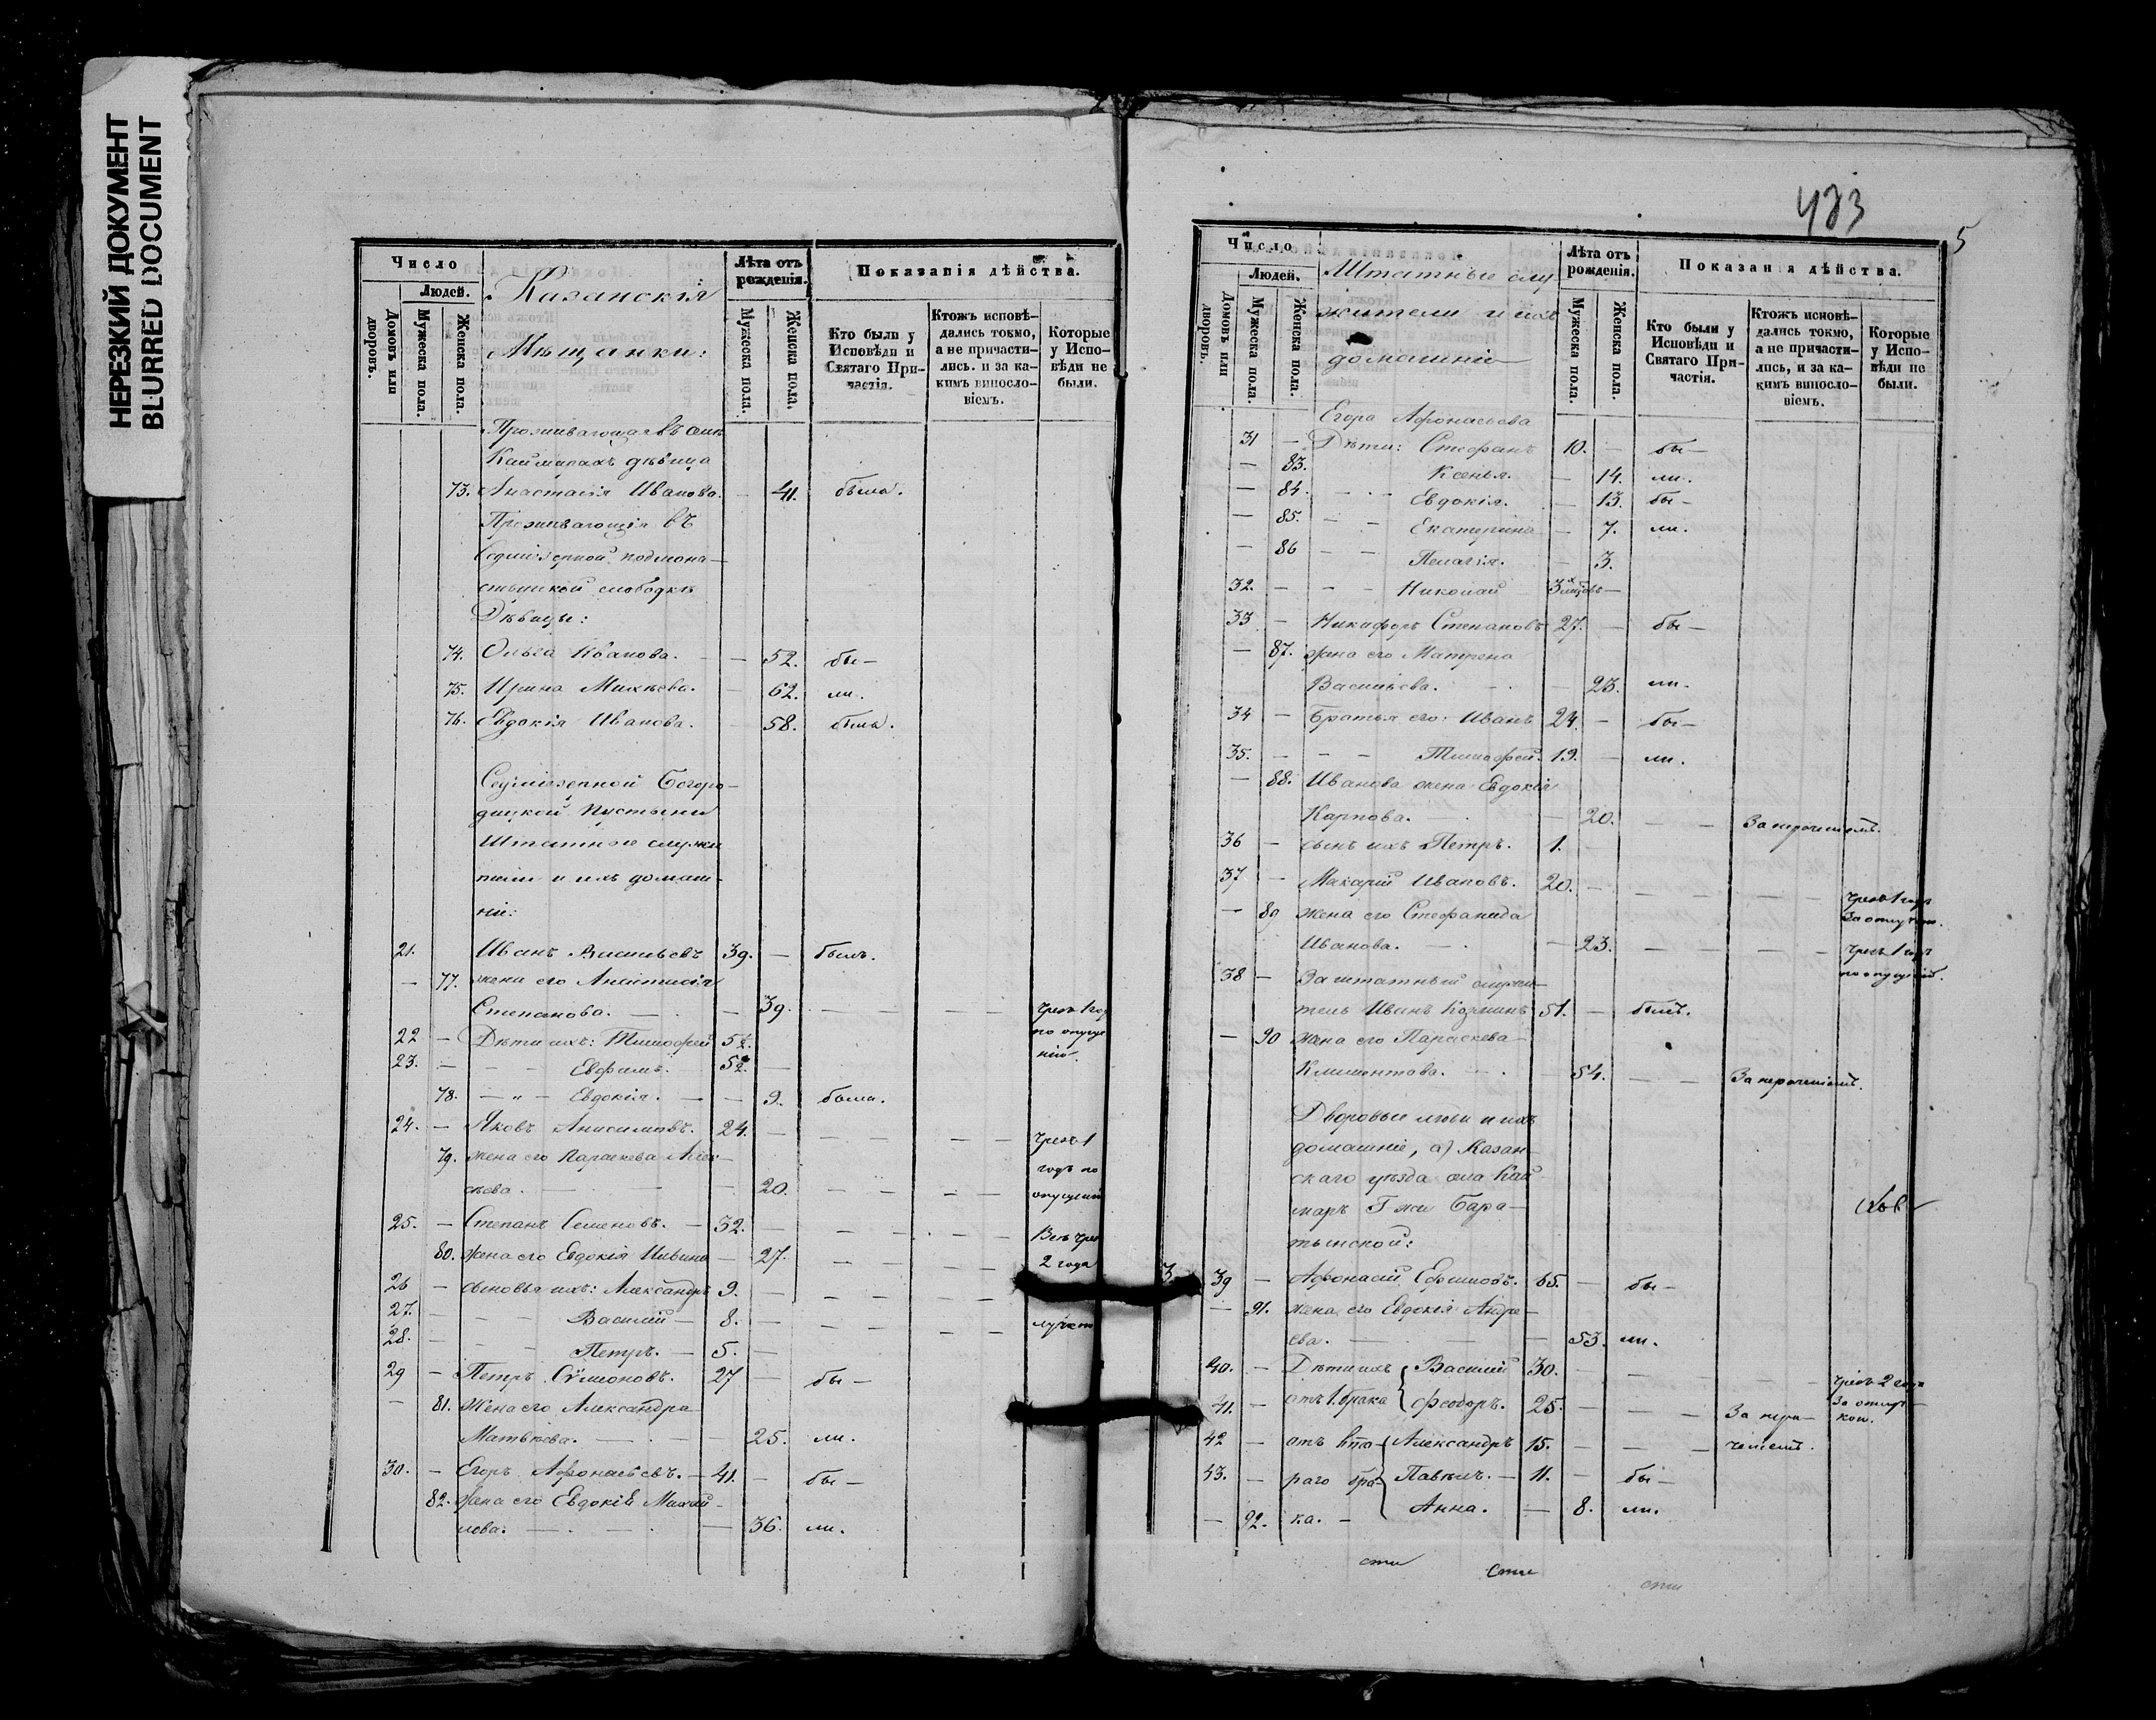 НЕРЕЗКИЙ ДОКУМЕНТ
BLURRED DOCUMENT
Число
Людей.
Домовъ или дворовъ.
Мужеска пола.
Женска пола.
Казанскія
Мѣщанки:
Лѣта отъ рожденія.
Мужеска пола.
Женска пола.
Показанія дѣйства.
Кто были у Исповѣди и Святаго Причастія.
Ктожъ исповѣдались токмо, а не причастились. и за какимъ винословіемъ.
Которые у Исповѣди не были.
Проживающая въ селѣ
Каймарахъ дѣвица
73. Анастасія Иванова. — 41. была.
Проживающія въ
Седміезерной подмона—
стырской слободкѣ
Дѣвицы:
74. Ольга Иванова. — 52. бы—
75. Ирина Михѣева. — 62. ли.
76. Евдокія Иванова. — 58. была.
Седміезерной Богоро—
дицкой Пустыни
Штатные служи
тели и ихъ домаш-
ніе:
21. Иванъ Васильевъ 39. — былъ.
— 77. жена его Анастасія
Степанова. — — 39. — — — — чрезъ 1 год
по опуще
нію.
22 — Дѣти ихъ: Тимофей 5½.
23. — — — Евфимъ. 5½. —
78. — „ — Евдокія. — — 9. была.
24. — Яковъ Анисимовъ. 24. — — — — — чрезъ 1
79. жена его Параскева Алек—
годъ по
сѣева. — — — 20. — — — — опущенію
25. — Степанъ Семеновъ. — 32. — — — — — Всѣ чрез
80. жена его Евдокія Ильина — 27. — — — — 2 года
26 — сыновья ихъ: Александръ 9. — — — — —
27. — — — Василій — 8. — — — — —
28. — — — Петръ. — 5. —
29 — Петръ Сѷмеоновъ. 27 — бы —
— 81. Жена его Александра
Матвѣева. — — — 25. ли.
30. — Егоръ Афонасьевъ. — 41. — бы —
82. жена его Евдокія Михай—
лова. — — — 36. ли.
433
5
Число
Людей.
Домовъ или дворовъ.
Мужеска пола.
Женска пола.
Штатные слу
жители и ихъ
домашніе
Лѣта отъ рожденія.
Мужеска пола.
Женска пола.
Показанія дѣйства.
Кто были у Исповѣди и Святаго Причастія.
Ктожъ исповѣдались токмо, а не причастились, и за какимъ винословіемъ.
Которые у Исповѣди не были.
Егора Афонасьева
31 — Дѣти: Стефанъ 10. — бы—
— 83. Ксенья. — 14. ли.
— 84. — — Евдокія. — 13. бы—
— 85. — — Екатерина — 7. ли.
— 86 — — Пелагія. — 3.
32. — — — Николай 3х мѣсцовъ—
33 — Никифоръ Степановъ 27. — бы—
— 87. жена его Матрена
Васильева. — — 23. ли.
34 — братья его: Иванъ 24. — бы—
35. — — — Тимофей. 19. — ли.
— 88. Иванова жена Евдокія
Карпова. — — 20. — — За нераченіемъ.
36 — сынъ ихъ Петръ. 1. —
37 — Макарій Ивановъ. 20. — — — — — чрезъ 1 годъ
За отлучкою.
— 89 жена его Стефанида
Иванова. — — 23. — — — — чрезъ 1 годъ
по опущенію.
38 — Заштатный служи—
тель Иванъ Козминъ 51. — былъ.
— 90 жена его Параскева
Климентова. — — 54. — — За нераченіемъ.
Дворовые люди и ихъ
домашніе, а) Казан—
скаго уѣзда села Кай
маръ Г-жи Бара—
тынской:
3. 39 — Афонасій Ефимовъ. 65. — бы—
— 91. жена его Евдокія Андре—
ева. — — — 53. ли.
40. — Дѣти ихъ Василій 30. — — — — — чрезъ 2 года
41. — отъ 1. брака Феодоръ. 25. — — — За нера— За отлуч—
кою.
42 — отъ вто— Александръ 15. — — — ченіемъ.
43. — раго бра— Павелъ. — 11. — бы —
— 92. ка. — Анна. — 8. ли.